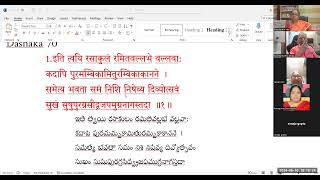 Dashaka 70
1.इति त्वयि रसाकुलं रमितवल्लभे वल्लवाः
कदापि पुरमम्बिकामितुरम्बिकाकानने ।
समेत्य भवता समं निशि निषेव्य दिव्योत्सवं
सुखं सुषुपुरग्रसीद्व्रजपमुग्रनागस्तदा ॥१॥
ఇతి త్వయి రసాకులం రమితవల్లభే వల్లవాః
కదాపి పురమంబికామితురంబికాకాననే ।
సమేత్య భవతా సమం నిశి నిషేవ్య దివ్యోత్సవం
సుఖం సుషుపురగ్రసీద్వ్రజపముగ్రనాగస్తదా